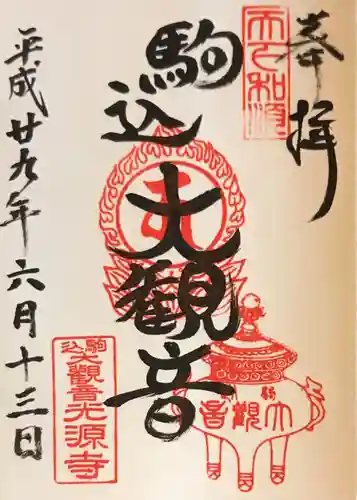 奉拝
天下和順
駒込
大観音
平成廿九年六月十三日
駒込
大觀音光源寺
駒
大觀音